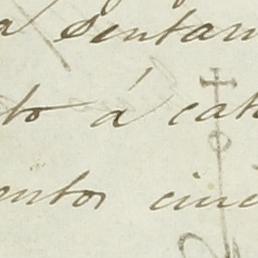 a sentan
to á cat
entos cinc